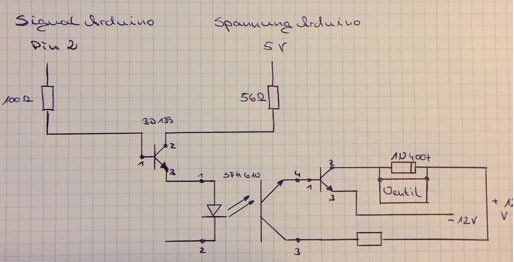 Signal Arduino
Spannung Arduino
Pin 2
5 V
100Ω
56Ω
BD135
2
1
3
1
SFH610
4
1
2
3
1N4007
Ventil
-12V
+12
V
2
3